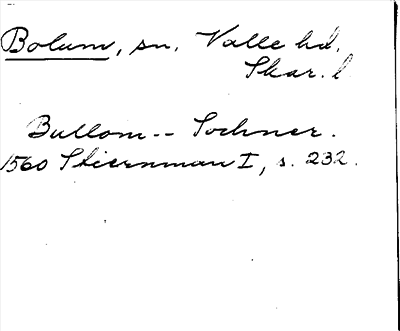 Bolum, sn. Valle hd.
Skar. l.
Bullom -- Sochner.
1560 Stiernman I, s. 232.